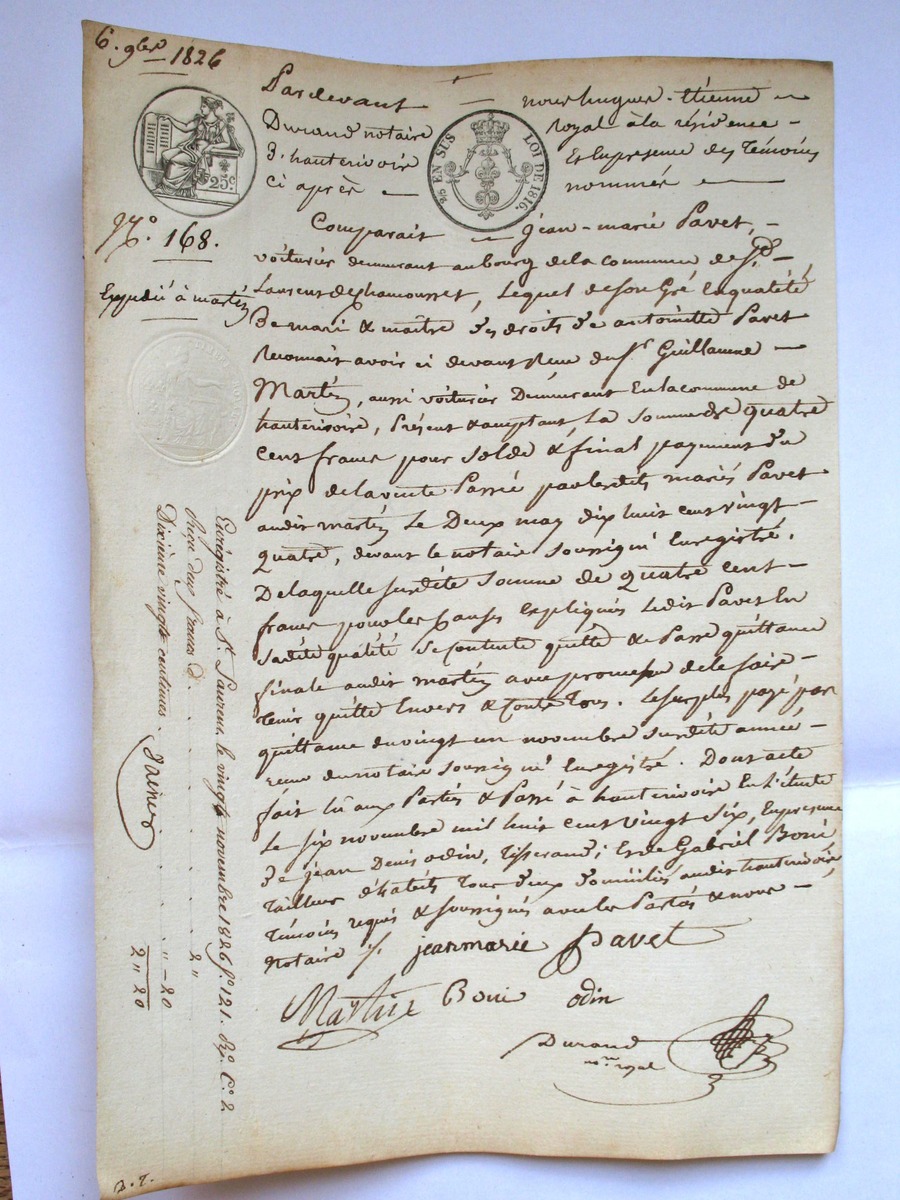 6. 9bre 1826
Pardevant — nous hugues-Etienne —
Durand notaire royal à la résidence —
D'hauterivoire Et En presence des Témoins
ci après — nommés —
25 EN SUS LOI DE 1816.
25c
No. 168.
Expedié à martin
Comparait — Jean-marie Pavet, —
voiturier demeurant au bourg de la commune de St.
Laurent de chamousset, Lequel de son Gré En qualité
De mari & maître des droits de antoinette Pavet
Reconnait avoir ci devant Recu du Sr Guillaume —
Martin, aussi voiturier Demeurant En la commune de
hauterivoire, Présent & acceptant, La somme de quatre
cent francs pour solde & final payement du
prix de la vente Passée par lesdits mariés Pavet
audit martin Le Deux may dix huit cent vingt-
quatre, devant le notaire soussigné Enregistré.
De laquelle susdite somme de quatre cent —
francs pour les causes Expliqués Ledit Pavet En
sadite qualité se contente quitte & Passe quittance
finale audit martin avec promesse de le faire —
tenir quitte Envers & Contre Tous. Le surplus payé par
quittance du vingt un novembre susdite année —
recue du notaire soussigné Enregistré. Dont acte
fait lu aux Parties & Passé à hauterivoire En L'étude
Le six novembre mil huit cent vingt six, En presence
de jean Denis odin, Tisserand; Et de Gabriel Boni
tailleur d'habits Tous deux Domiciliés audit hauterivoire
Témoins requis & soussignés avec les Parties & nous —
notaire ./. jeanmarie Pavet
Martin Boni odin
Durand
nre royal
Enregistré à St. Laurent, le vingt novembre 1826 fo 121. Ro. C. 2
Reçu deux francs d. 2"
Dixième vingt centimes. " — 20
2 " 20
D. T.